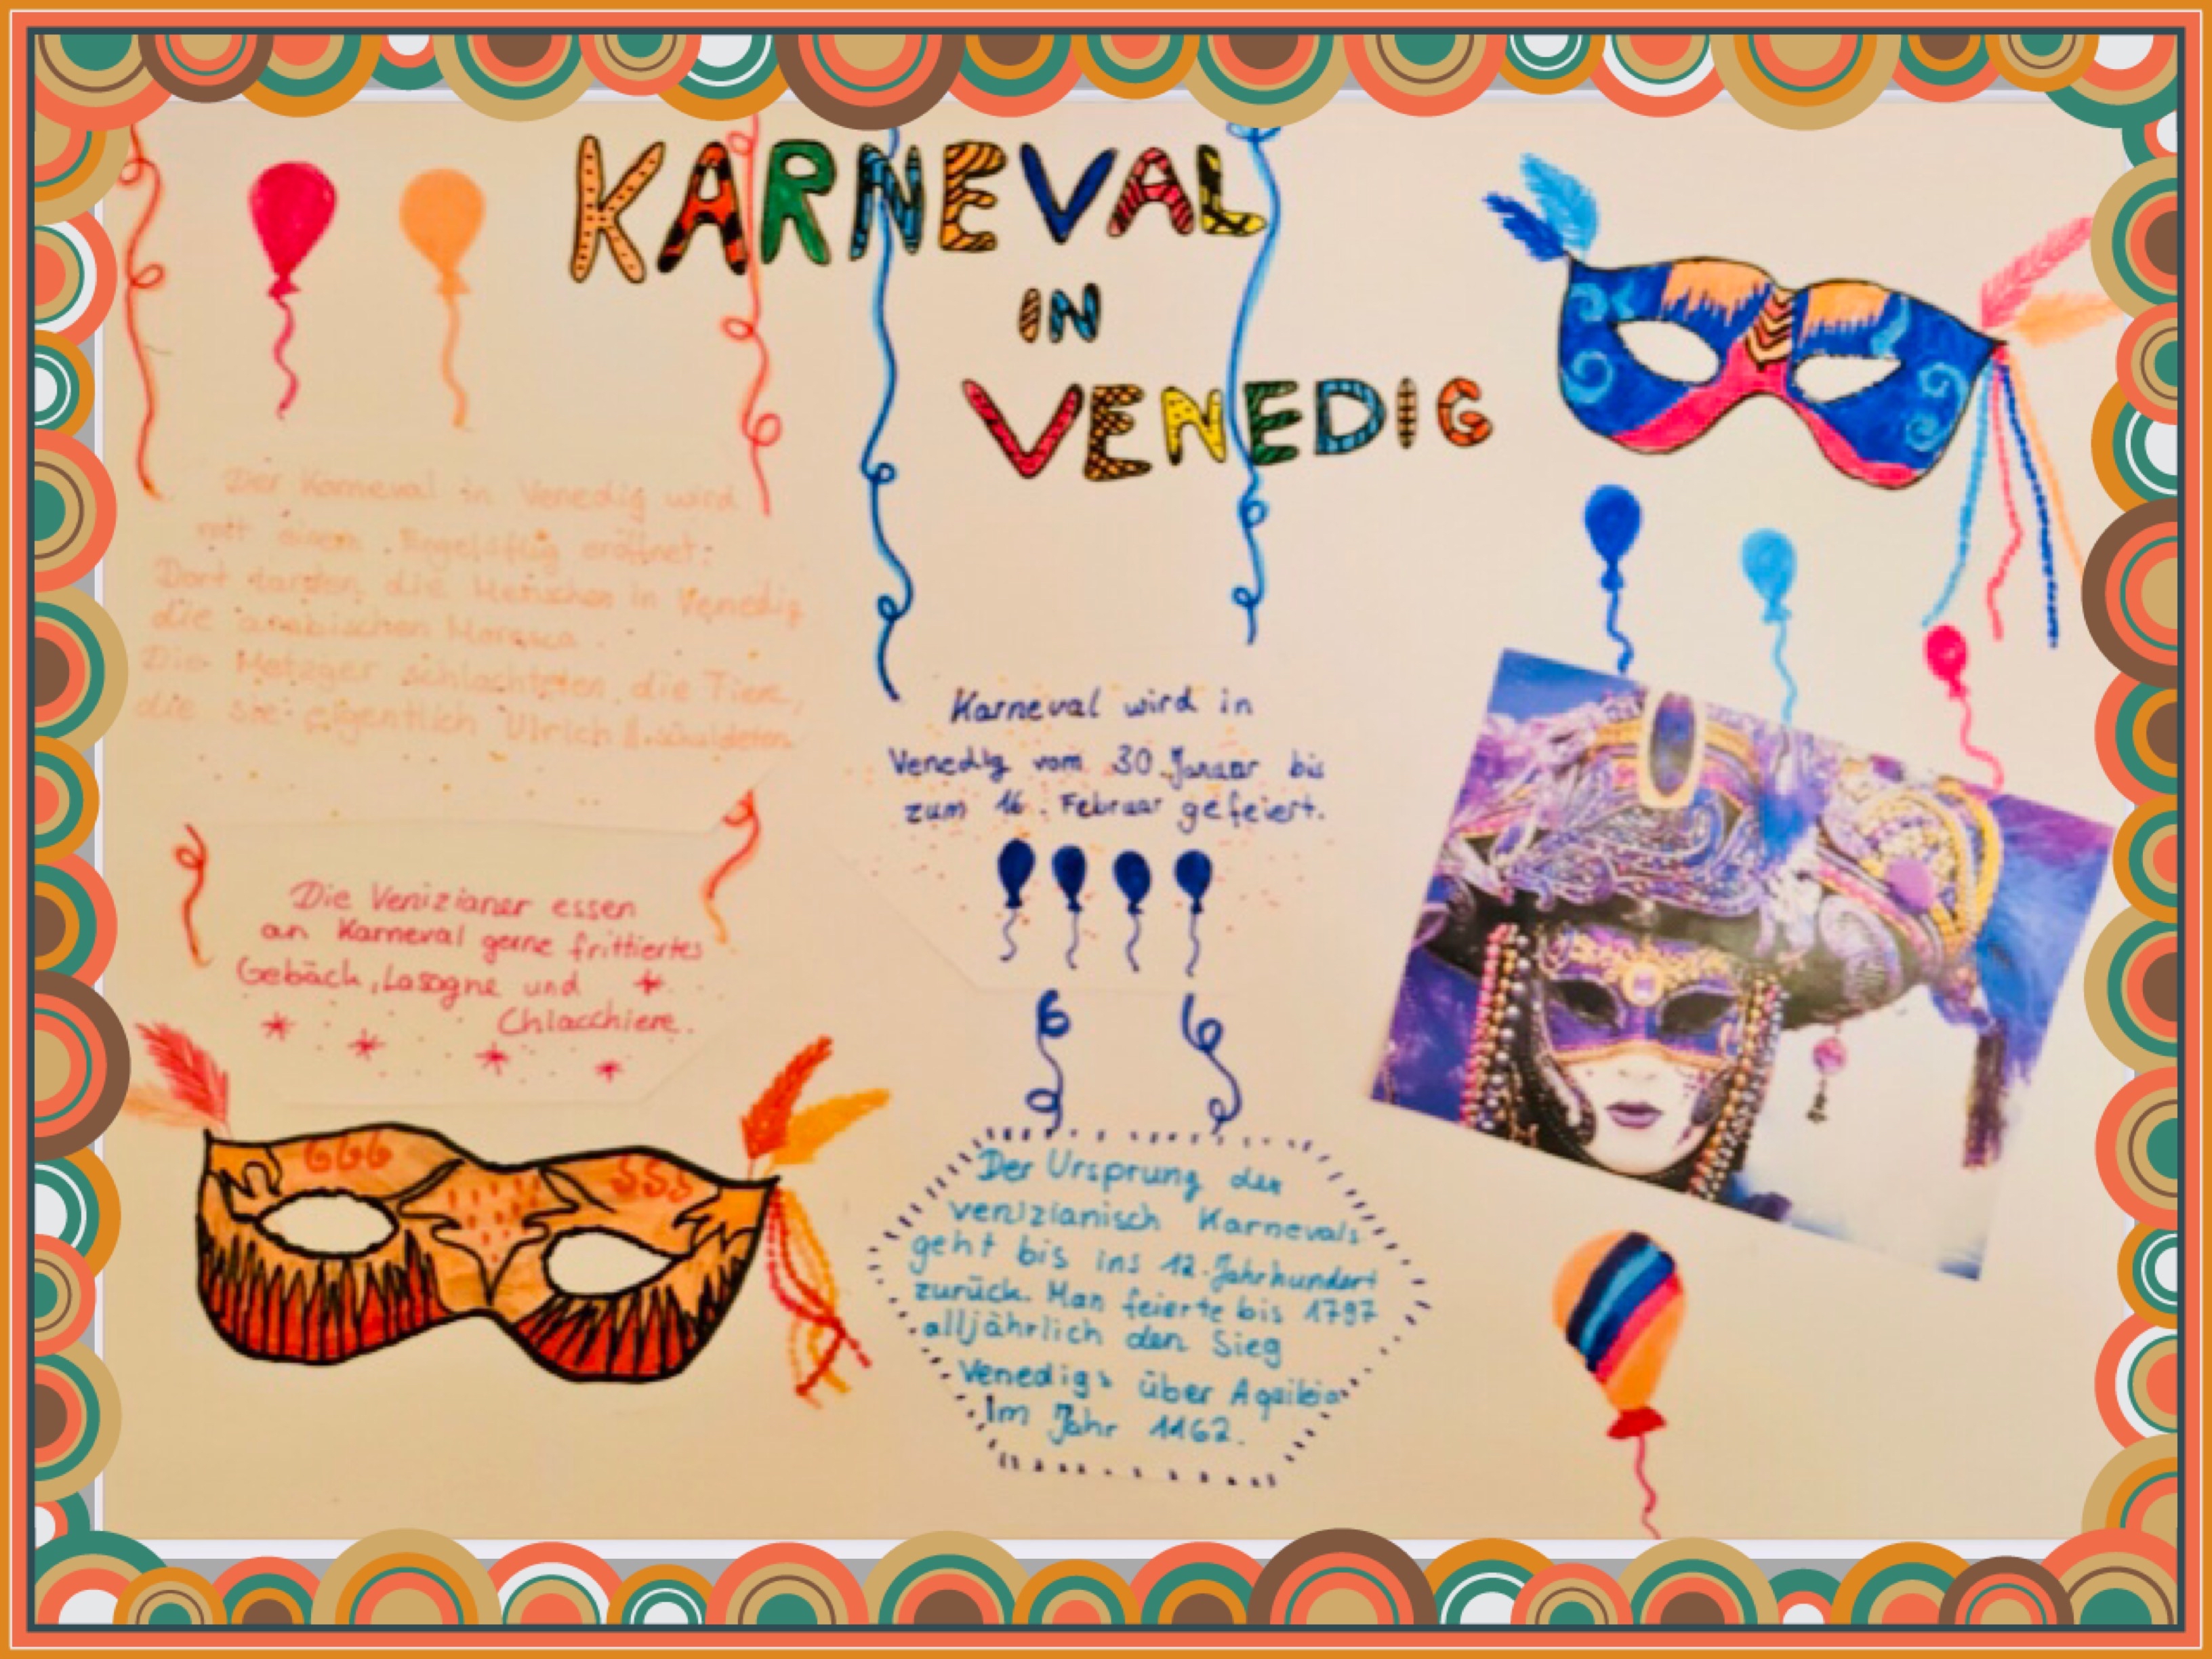 KARNEVAL
IN
VENEDIG
Der Karneval in Venedig wird
mit einem Engelsflug eröffnet.
Dort tanzten die Menschen in Venedig
die arabischen Moresca.
Die Metzger schlachteten die Tiere,
die sie eigentlich Ulrich II.
Karneval wird in
Venedig vom 30. Januar bis
zum 16. Februar gefeiert.
Die Venizianer essen
an Karneval gerne frittiertes
Gebäck, Lasagne und
Chiacchiere.
666 SSS
Der Ursprung des
venizianisch Karnevals
geht bis ins 12. Jahrhundert
zurück. Man feierte bis 1797
alljährlich den Sieg
Venedigs über
Im Jahr 1162.